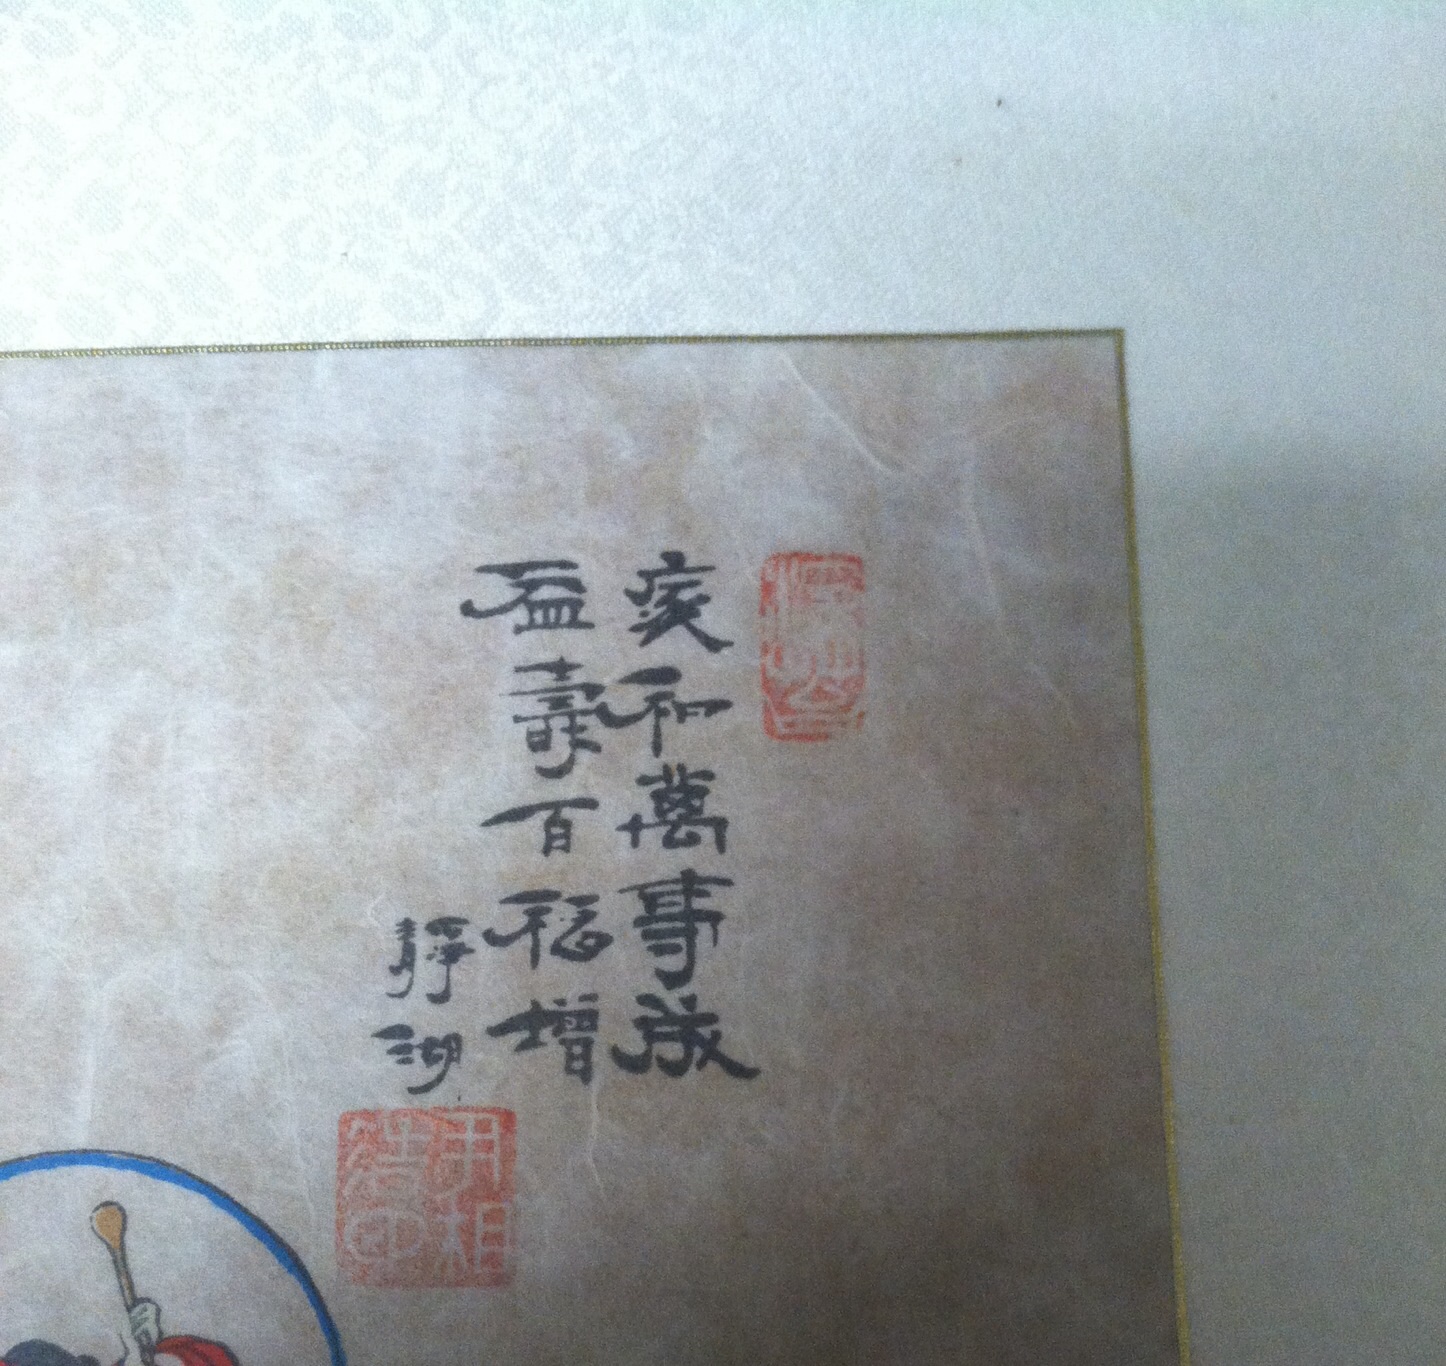 家和萬事成
益壽百福增
靜湖
尹相